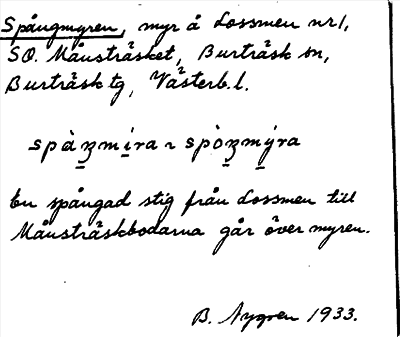 Spångmyren, myr å Lossmen nr 1,
SO. Månsträsket, Burträsk sn,
Burträsk tg, Västerb. l.
spàʒmíra ~ spòʒmýra
En spångad stig från Lossmen till
Månsträskbodarna går över myren.
B. Nygren 1933.